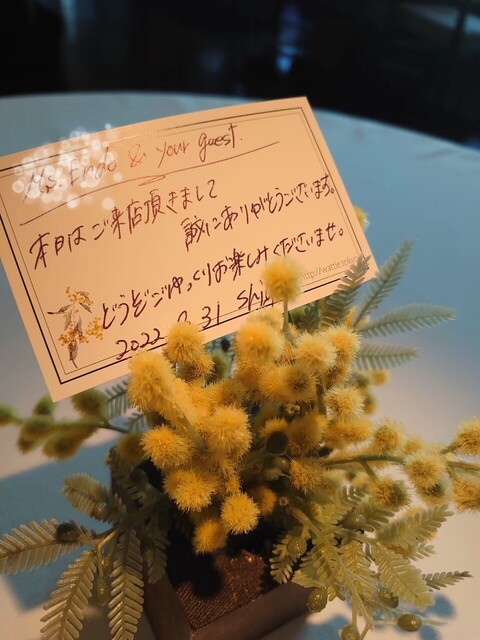 Ms. Endo & your guest.
本日はご来店頂きまして
誠にありがとうございます。
どうぞごゆっくりお楽しみくださいませ。
2022 31
http://wattle.tokyo